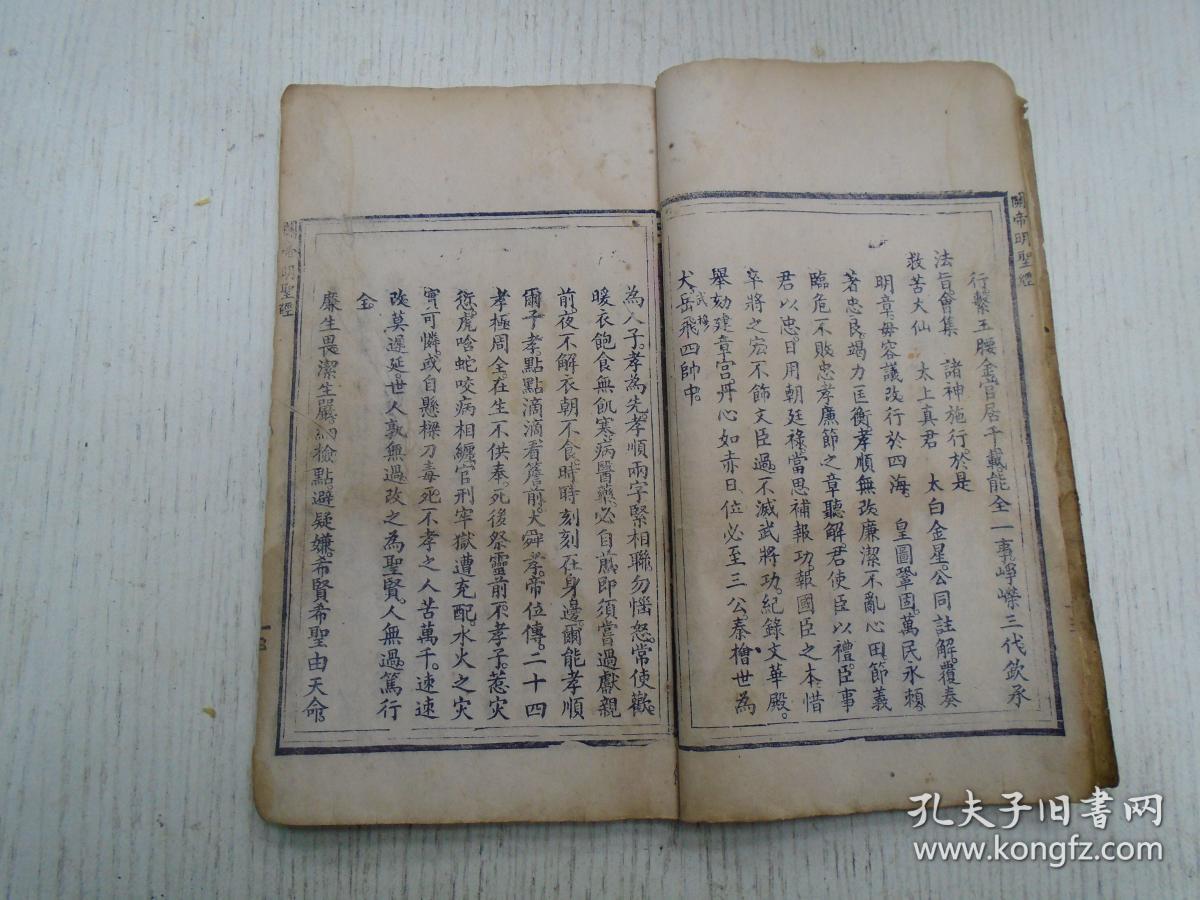 關帝明聖經
行繫玉腰金官居千載能全一事崢嶸三代欽承
法旨。會集　諸神施行。於是
救苦大仙　太上真君　太白金星。公同註解。覆奏
明章。毋容議改。行於四海。　皇圖鞏固。萬民永賴。
著忠良。竭力匡衡。孝順無改。廉潔不亂心田。節義
臨危不敗。忠孝廉節之章。聽解。君使臣以禮。臣事
君以忠。日用朝廷祿。當思補報功。報國臣之本。惜
卒將之宏。不飾文臣過。不滅武將功。紀錄文華殿。
舉劾建章宮。丹心如赤日。位必至三公。秦檜世為
犬。岳武穆飛四帥中。
為人子。孝為先。孝順兩字緊相聯。勿惱怒。常使歡。
暖衣飽食無飢寒。病醫藥必自煎。即須嘗過獻親
前。夜不解衣朝不食。時時刻刻在身邊。爾能孝順
爾子孝。點點滴滴看簷前。大舜孝。帝位傳。二十四
孝極周全。在生不供奉。死後祭靈前。不孝子。惹災
愆。虎啗蛇咬病相纏。官刑牢獄遭充配。水火之災
實可憐。或自懸樑刀毒死。不孝之人苦萬千。速速
改。莫遲延。世人孰無過。改之為聖賢。人無過。篤行
全。
廉生畏。潔生嚴。納檢點。避疑嫌。希賢希聖由天命。
關帝明聖經
孔夫子旧书网
www.kongfz.com